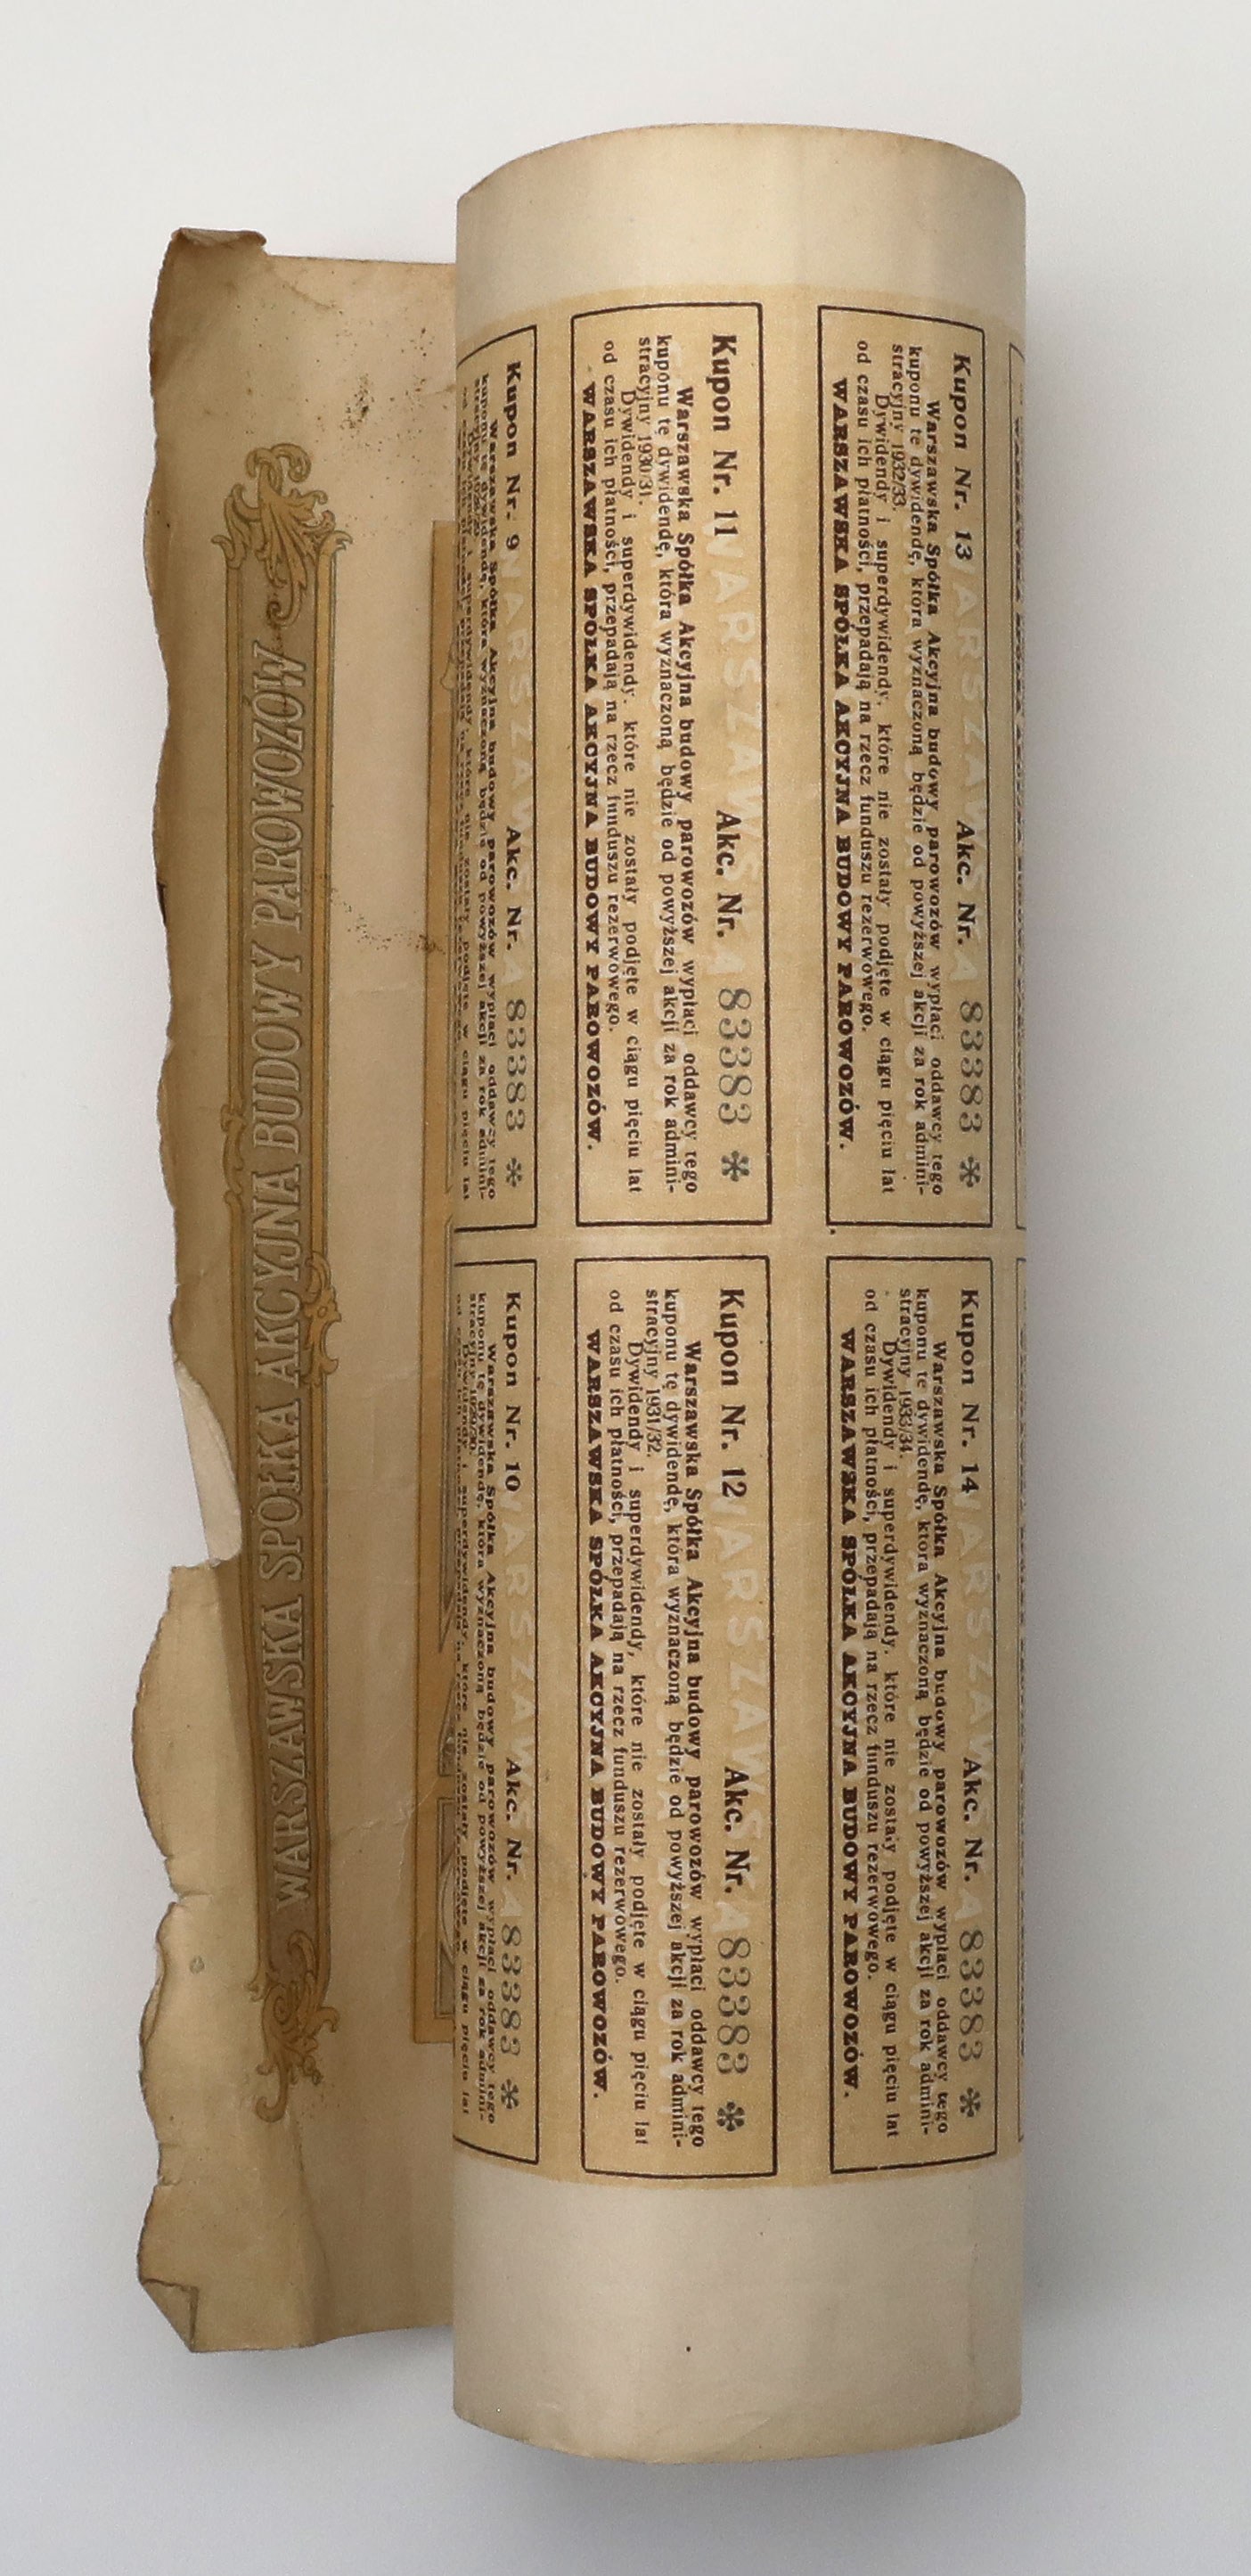 WARSZAWSKA SPÓŁKA AKCYJNA BUDOWY PAROWOZÓW
Kupon Nr. 9 Akc. Nr. A 83383 *
Warszawska Spółka Akcyjna budowy parowozów wypłaci oddawcy tego
kuponu tę dywidendę, która wyznaczoną będzie od powyższej akcji za rok admini-
Kupon Nr. 10 Akc. Nr. A 83383 *
Warszawska Spółka Akcyjna budowy parowozów wypłaci oddawcy tego
kuponu tę dywidendę, która wyznaczoną będzie od powyższej akcji za rok admini-
stracyjny 1929/30.
Dywidendy i superdywidendy, które nie zostały podjęte w ciągu pięciu lat
Kupon Nr. 11 Akc. Nr. A 83383 *
Warszawska Spółka Akcyjna budowy parowozów wypłaci oddawcy tego
kuponu tę dywidendę, która wyznaczoną będzie od powyższej akcji za rok admini-
stracyjny 1930/31.
Dywidendy i superdywidendy, które nie zostały podjęte w ciągu pięciu lat
od czasu ich płatności, przepadają na rzecz funduszu rezerwowego.
WARSZAWSKA SPÓŁKA AKCYJNA BUDOWY PAROWOZÓW.
Kupon Nr. 12 Akc. Nr. A 83383 *
Warszawska Spółka Akcyjna budowy parowozów wypłaci oddawcy tego
kuponu tę dywidendę, która wyznaczoną będzie od powyższej akcji za rok admini-
stracyjny 1931/32.
Dywidendy i superdywidendy, które nie zostały podjęte w ciągu pięciu lat
od czasu ich płatności, przepadają na rzecz funduszu rezerwowego.
WARSZAWSKA SPÓŁKA AKCYJNA BUDOWY PAROWOZÓW.
Kupon Nr. 13 Akc. Nr. A 83383 *
Warszawska Spółka Akcyjna budowy parowozów wypłaci oddawcy tego
kuponu tę dywidendę, która wyznaczoną będzie od powyższej akcji za rok admini-
stracyjny 1932/33.
Dywidendy i superdywidendy, które nie zostały podjęte w ciągu pięciu lat
od czasu ich płatności, przepadają na rzecz funduszu rezerwowego.
WARSZAWSKA SPÓŁKA AKCYJNA BUDOWY PAROWOZÓW.
Kupon Nr. 14 Akc. Nr. A 83383 *
Warszawska Spółka Akcyjna budowy parowozów wypłaci oddawcy tego
kuponu tę dywidendę, która wyznaczoną będzie od powyższej akcji za rok admini-
stracyjny 1933/34.
Dywidendy i superdywidendy, które nie zostały podjęte w ciągu pięciu lat
od czasu ich płatności, przepadają na rzecz funduszu rezerwowego.
WARSZAWSKA SPÓŁKA AKCYJNA BUDOWY PAROWOZÓW.